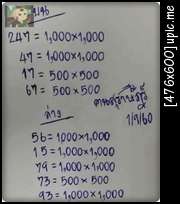 บน
247 = 1,000×1,000
47 = 1,000×1,000
17 = 500×500
67 = 500×500
1/9/60
ล่าง
56 = 1000×1,000
15 = 1,000×1,000
79 = 1,000×1,000
73 = 500×500
93 = 1,000×1,000
[476x600]upic.me